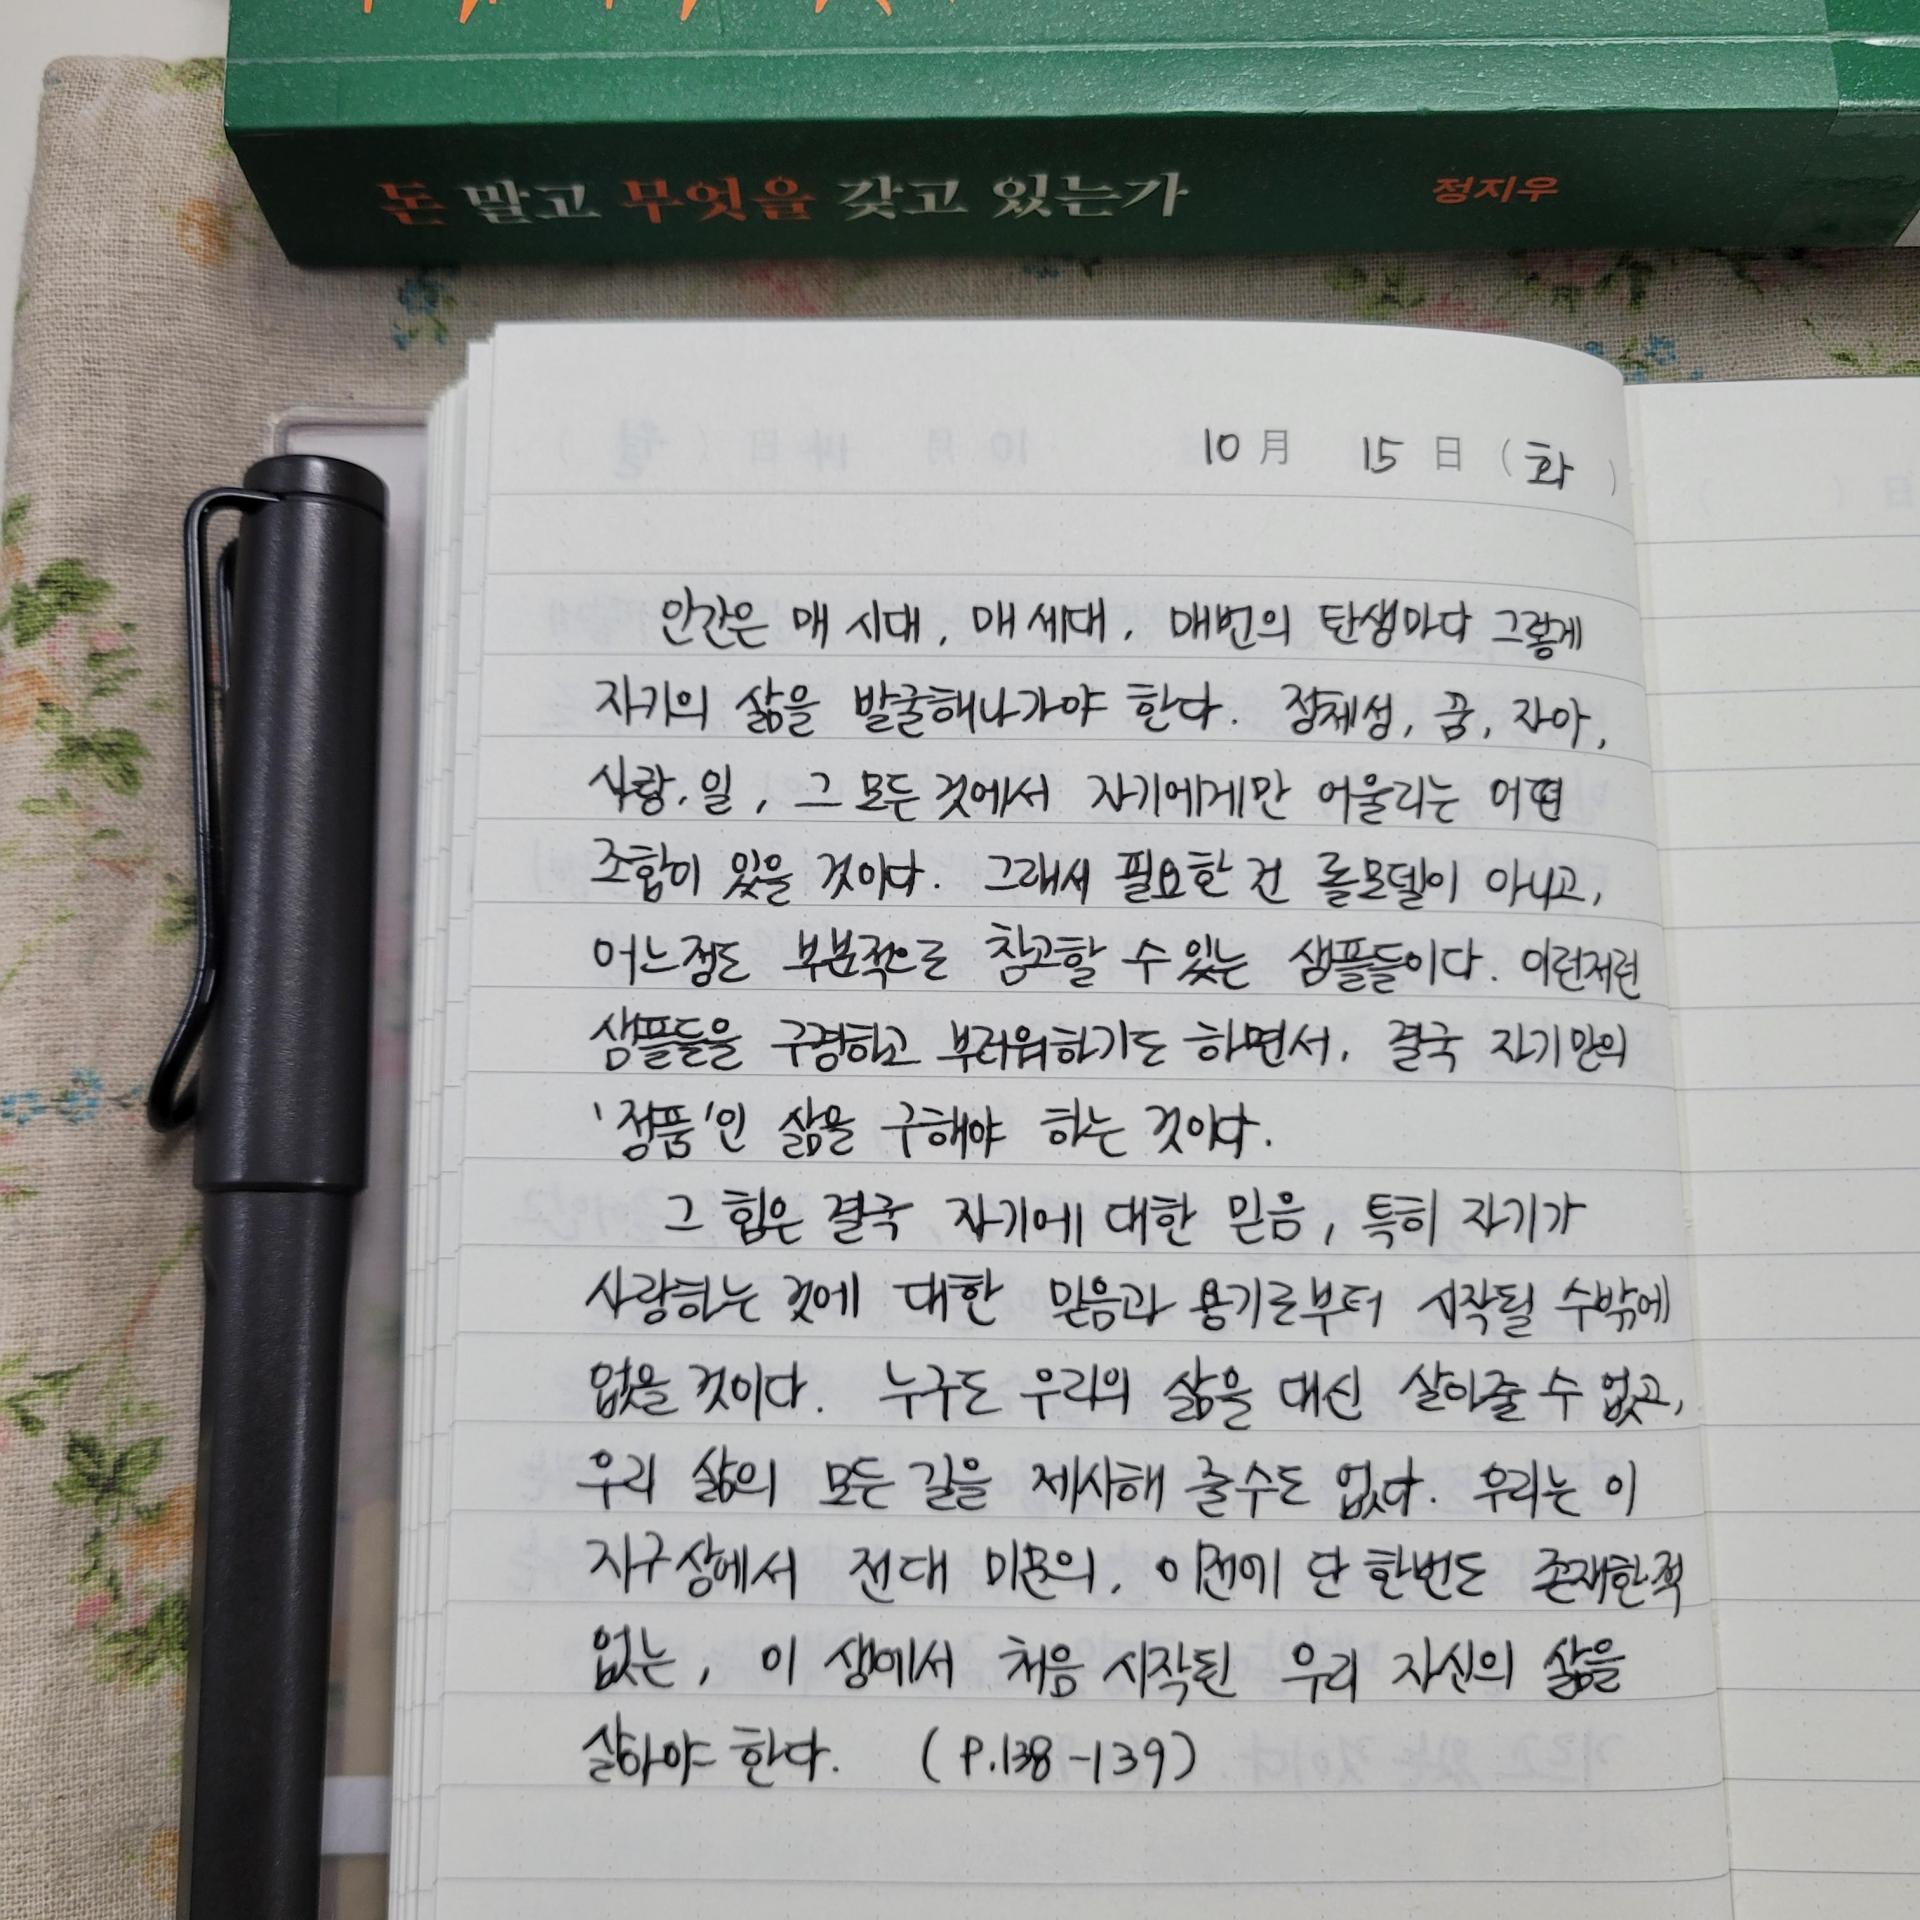 돈 말고 무엇을 갖고 있는가 정지우
10月 15日 (화)
인간은 매 시대, 매 세대, 매번의 탄생마다 그렇게
자기의 삶을 발굴해나가야 한다. 정체성, 꿈, 자아,
사랑, 일, 그 모든 것에서 자기에게만 어울리는 어떤
조합이 있을 것이다. 그래서 필요한 건 롤모델이 아니고,
어느정도 부분적으로 참고할 수 있는 샘플들이다. 이런저런
샘플들을 구경하고 부러워하기도 하면서, 결국 자기만의
'정품'인 삶을 구해야 하는 것이다.
그 힘은 결국 자기에 대한 믿음, 특히 자기가
사랑하는 것에 대한 믿음과 용기로부터 시작될 수밖에
없을 것이다. 누구도 우리의 삶을 대신 살아줄 수 없고,
우리 삶의 모든 길을 제시해 줄수도 없다. 우리는 이
지구상에서 전대 미문의, 이전에 단 한번도 존재한적
없는, 이 생에서 처음 시작된 우리 자신의 삶을
살아야 한다. (P.138-139)